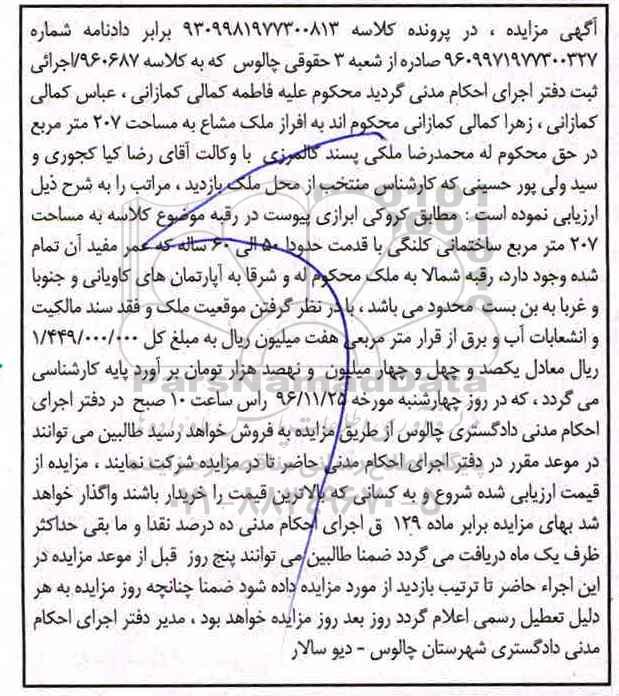 آگهی مزایده ، در پرونده کلاسه ۹۳۰۹۹۸۱۹۷۷۳۰۰۸۱۳ برابر دادنامه شماره
۹۶۰۹۹۷۱۹۷۷۳۰۰۳۲۷ صادره از شعبه ۳ حقوقی چالوس که به کلاسه ۹۶۰۶۸۷/اجرائی
ثبت دفتر اجرای احکام مدنی گردید محکوم علیه فاطمه کمالی کمازانی ، عباس کمالی
کمازانی ، زهرا کمالی کمازانی محکوم اند به افراز ملک مشاع به مساحت ۲۰۷ متر مربع
در حق محکوم له محمدرضا ملکی پسند کالمرزی با وکالت آقای رضا کیا کجوری و
سید ولی پور حسینی که کارشناس منتخب از محل ملک بازدید ، مراتب را به شرح ذیل
ارزیابی نموده است : مطابق کروکی ابرازی پیوست در رقبه موضوع کلاسه به مساحت
۲۰۷ متر مربع ساختمانی کلنگی با قدمت حدودا ۵۰ الی ۶۰ ساله که عمر مفید آن تمام
شده وجود دارد، رقبه شمالا به ملک محکوم له و شرقا به آپارتمان های کاویانی و جنوبا
و غربا به بن بست محدود می باشد ، با در نظر گرفتن موقعیت ملک و فقد سند مالکیت
و انشعابات آب و برق از قرار متر مربعی هفت میلیون ریال به مبلغ کل ۱/۴۴۹/۰۰۰/۰۰۰
ریال معادل یکصد و چهل و چهار میلیون و نهصد هزار تومان بر آورد پایه کارشناسی
می گردد ، که در روز چهارشنبه مورخه ۹۶/۱۱/۲۵ راس ساعت ۱۰ صبح در دفتر اجرای
احکام مدنی دادگستری چالوس از طریق مزایده به فروش خواهد رسید طالبین می توانند
در موعد مقرر در دفتر اجرای احکام مدنی حاضر تا در مزایده شرکت نمایند ، مزایده از
قیمت ارزیابی شده شروع و به کسانی که بالاترین قیمت را خریدار باشند واگذار خواهد
شد بهای مزایده برابر ماده ۱۲۹ ق اجرای احکام مدنی ده درصد نقدا و ما بقی حداکثر
ظرف یک ماه دریافت می گردد ضمنا طالبین می توانند پنج روز قبل از موعد مزایده در
این اجراء حاضر تا ترتیب بازدید از مورد مزایده داده شود ضمنا چنانچه روز مزایده به هر
دلیل تعطیل رسمی اعلام گردد روز بعد روز مزایده خواهد بود ، مدیر دفتر اجرای احکام
مدنی دادگستری شهرستان چالوس - دیو سالار
ParsNamadData
۰۲۱-۸۸۳۴۹۶۷۰-۵